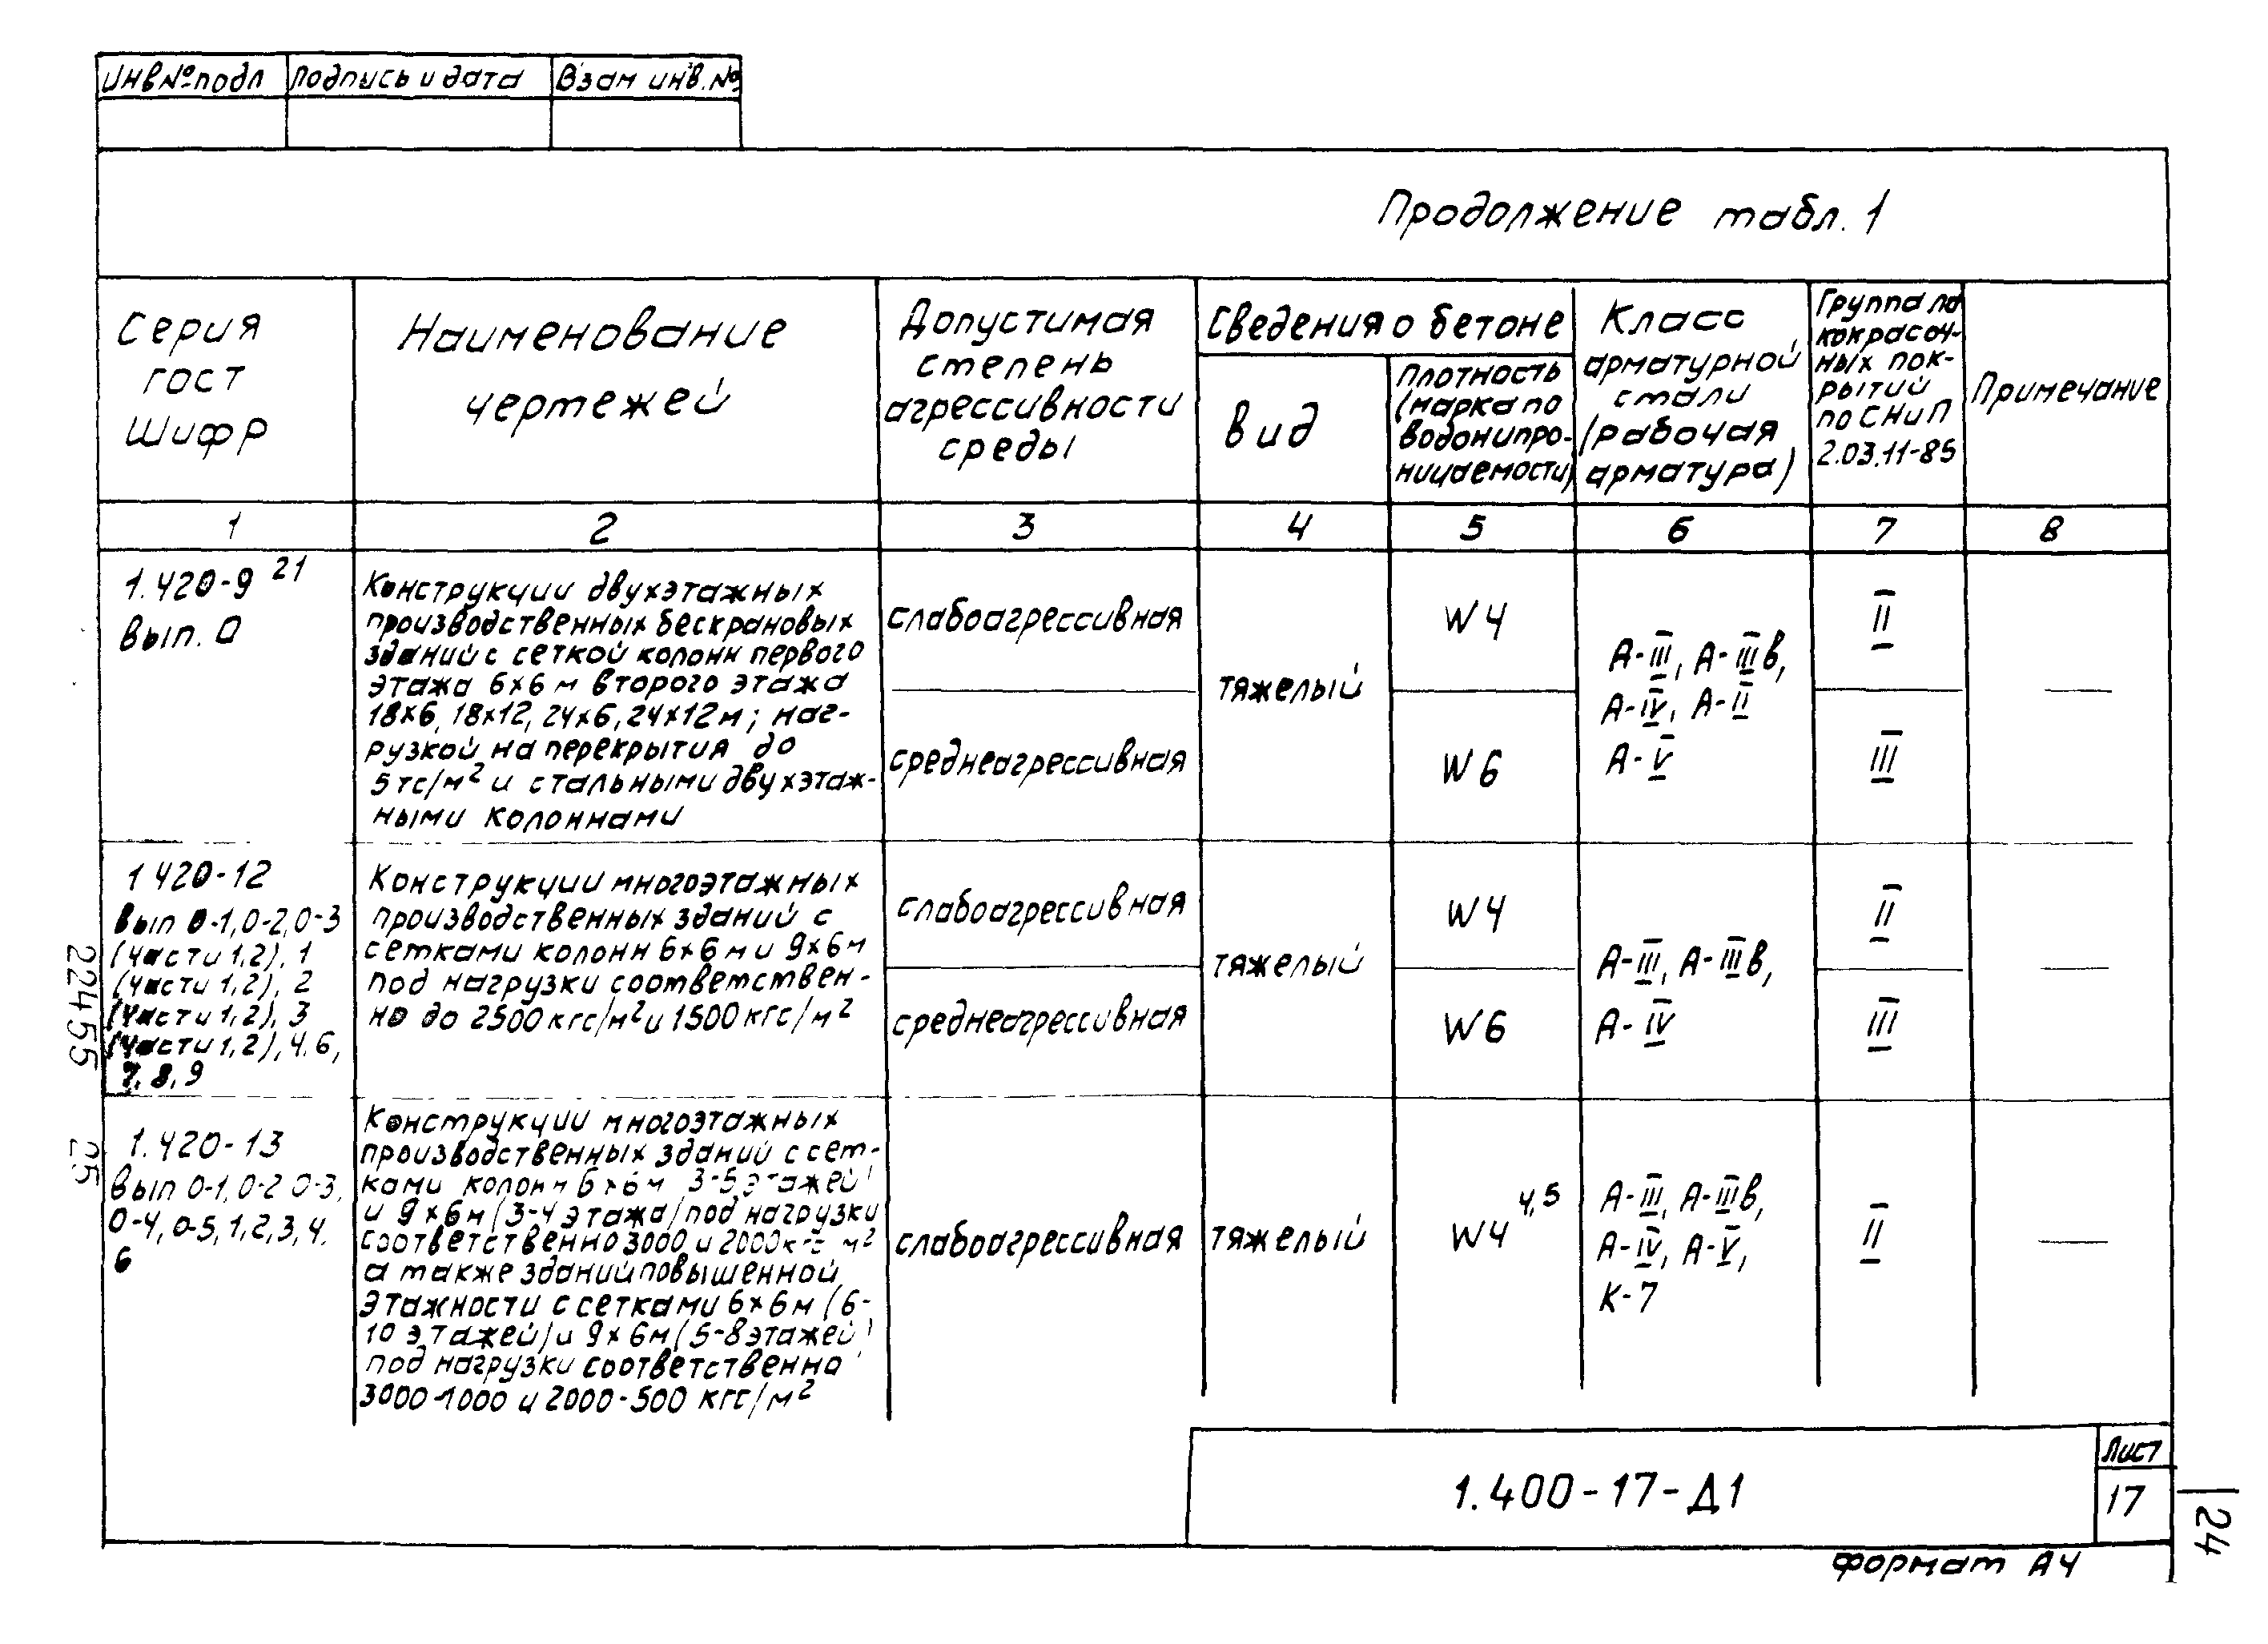 Инв№подл Подпись и дата Взам инв.№
Продолжение табл. 1
Серия
ГОСТ
Шифр
Наименование
чертежей
Допустимая
степень
агрессивности
среды
Сведения о бетоне
Вид
Плотность
(марка по
водонипро-
ницаемости)
Класс
арматурной
стали
(рабочая
арматура)
Группа ла
кокрасоч-
ных пок-
рытий
по СНиП
2.03.11-85
Примечание
1 2 3 4 5 6 7 8
1.420-9 21
Вып. 0
Конструкции двухэтажных
производственных бескрановых
зданий с сеткой колонн первого
этажа 6×6 м второго этажа
18×6, 18×12, 24×6, 24×12м; наг-
рузкой на перекрытия до
5тс/м² и стальными двухэтаж-
ными колоннами
слабоагрессивная
среднеагрессивная
тяжелый
W4
W6
А-III, А-IIIв,
А-IV, А-II
А-V
II
III
—
1 420-12
Вып 0-1, 0-2, 0-3
(части 1,2), 1
(части 1,2), 2
(части 1,2), 3
(части 1,2), 4. 6,
7, 8, 9
Конструкции многоэтажных
производственных зданий с
сетками колонн 6×6 м и 9×6м
под нагрузки соответствен-
но до 2500 кгс/м² и 1500 кгс/м²
слабоагрессивная
среднеагрессивная
тяжелый
W4
W6
А-III, А-IIIв,
А-IV
II
III
—
1.420-13
Вып 0-1, 0-2 0-3,
0-4, 0-5, 1, 2, 3, 4.
6
Конструкции многоэтажных
производственных зданий с сет-
ками колонн 6×6м 3-5 этажей)
и 9×6м (3-4 этажа) под нагрузки
соответственно 3000 и 2000кгс м²
а также зданий повышенной
этажности с сетками 6×6м (6-
10 этажей) и 9×6м (5-8 этажей)
под нагрузки соответственно
3000-1000 и 2000-500 кгс/м²
слабоагрессивная
тяжелый
W4 4,5
А-III, А-IIIв,
А-IV, А-V,
К-7
II
—
22455 25
1.400-17-Д1
Лист
17
24
Формат А4